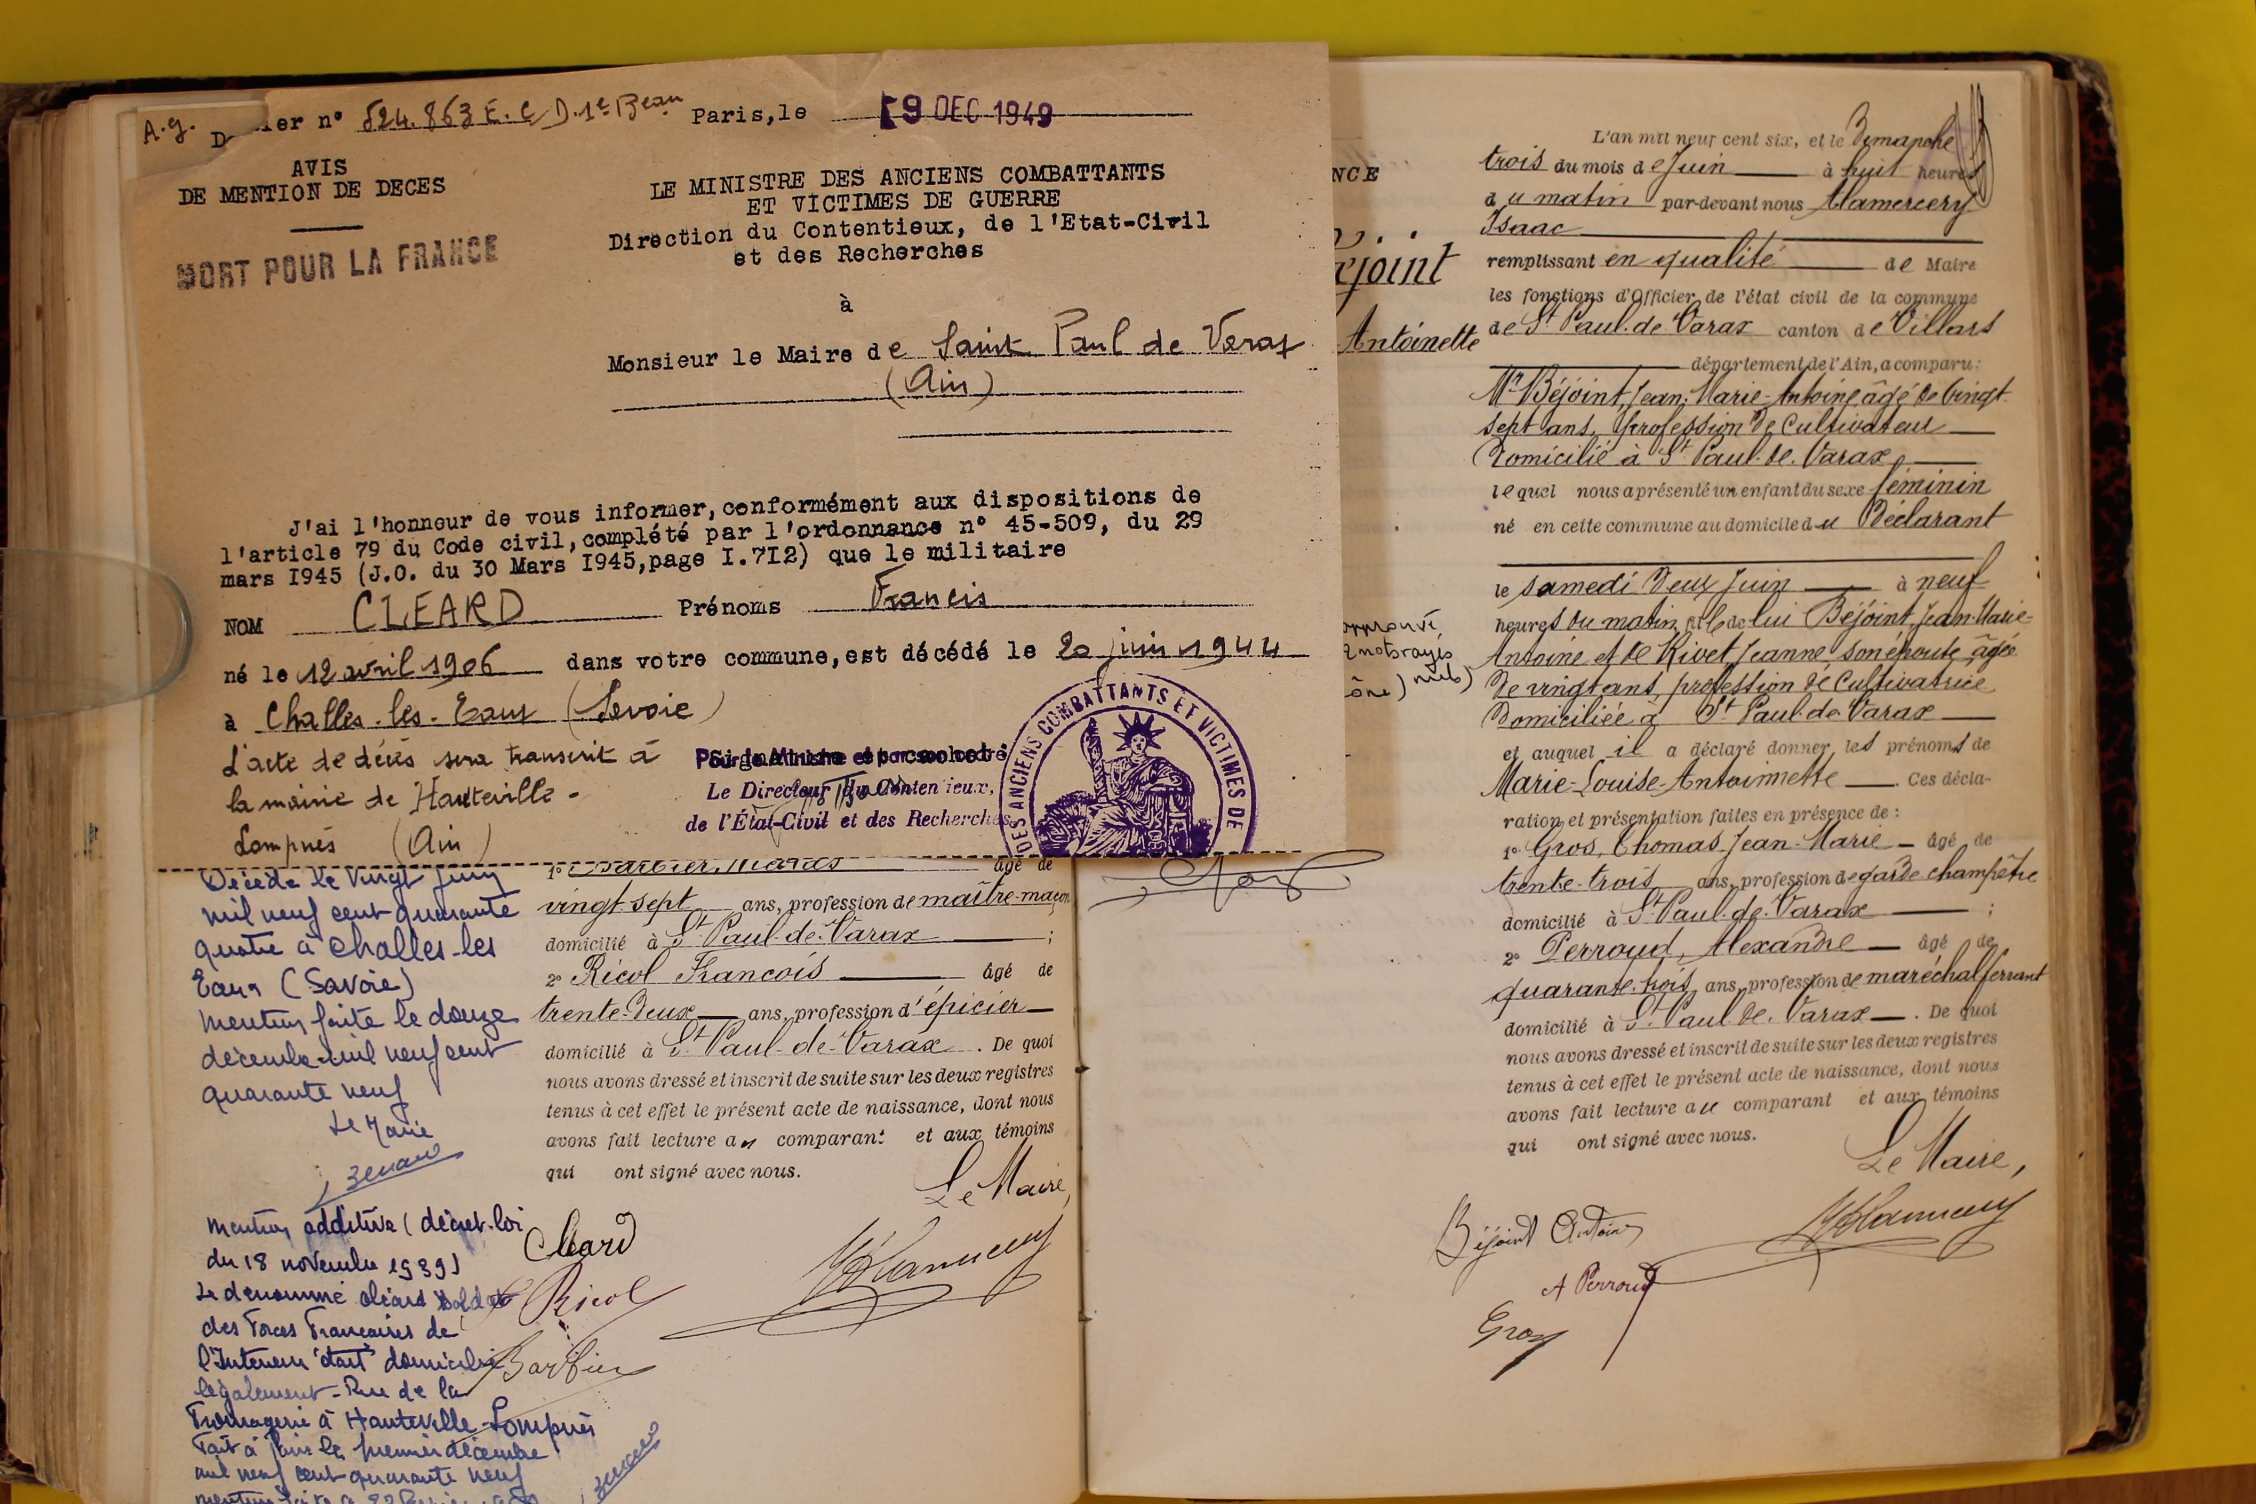 A.g. D ier n° 524.863 E.C D.1e Beau Paris, le 9 DEC 1949
AVIS
DE MENTION DE DECES
MORT POUR LA FRANCE
LE MINISTRE DES ANCIENS COMBATTANTS
ET VICTIMES DE GUERRE
Direction du Contentieux, de l'Etat-Civil
et des Recherches
à
Monsieur le Maire de Saint Paul de Varax
(Ain)
J'ai l'honneur de vous informer, conformément aux dispositions de
l'article 79 du Code civil, complété par l'ordonnance n° 45-509, du 29
mars I945 (J.O. du 30 Mars I945, page I.7I2) que le militaire
NOM CLEARD Prénoms Francis
né le 12 avril 1906 dans votre commune, est décédé le 20 juin 1944
à Challes-les-Eaux (Savoie)
L'acte de décès sera transcrit à
la mairie de Hauteville-
Lompnés (Ain)
Le Directeur du Contentieux,
de l'État-Civil et des Recherches
DES ANCIENS COMBATTANTS ET VICTIMES DE
Décédé le vingt juin
mil neuf cent quarante
quatre à Challes-les
Eaux (Savoie)
Mention faite le douze
décembre mil neuf cent
quarante neuf
Le Maire
Mention additive (décret-loi
du 18 novembre 1939)
Le dénommé Cléard soldat
des Forces Françaises de
l'Interieur était domicilié
légalement - Rue de la
Fromagerie à Hauteville-Lompnès
Fait à Paris le premier décembre
mil neuf cent quarante neuf
1° Barbier, Marius âgé de
vingt-sept ans, profession de maître-maçon
domicilié à St Paul-de-Varax ;
2° Ricol François âgé de
trente-deux ans, profession d'épicier
domicilié à St Paul-de-Varax. De quoi
nous avons dressé et inscrit de suite sur les deux registres
tenus à cet effet le présent acte de naissance, dont nous
avons fait lecture au comparant et aux témoins
qui ont signé avec nous.
Le Maire,
Cléard
Ricol
Barbier
NCE
éjoint
Antoinette
approuvé
2 mots rayés
nuls)
L'an mil neuf cent six, et le Dimanche
trois du mois de Juin à huit heures
du matin par-devant nous Mamercery
Isaac
remplissant en qualité de Maire
les fonctions d'Officier de l'état civil de la commune
de St Paul-de-Varax canton de Villars
département de l'Ain, a comparu :
Mr Béjoint, Jean-Marie-Antoine âgé de vingt-
sept ans, profession de Cultivateur
Domicilié à St Paul-de-Varax,
lequel nous a présenté un enfant du sexe féminin
né en cette commune au domicile du Déclarant
le samedi deux Juin à neuf
heures du matin, fille de lui Béjoint Jean-Marie-
Antoine et de Rivet Jeanne son épouse, âgée
de vingt ans, profession de Cultivatrice
Domiciliée à St Paul-de-Varax
et auquel il a déclaré donner les prénoms de
Marie-Louise-Antoinnette. Ces décla-
ration et présentation faites en présence de :
1° Gros, Thomas Jean-Marie âgé de
trente-trois ans, profession de garde champêtre
domicilié à St Paul-de-Varax ;
2° Perroud, Alexandre âgé de
quarante-trois ans, profession de maréchal ferrant
domicilié à St Paul de-Varax. De quoi
nous avons dressé et inscrit de suite sur les deux registres
tenus à cet effet le présent acte de naissance, dont nous
avons fait lecture au comparant et aux témoins
qui ont signé avec nous.
Le Maire,
Béjoint Antoine
A Perroud
Gros